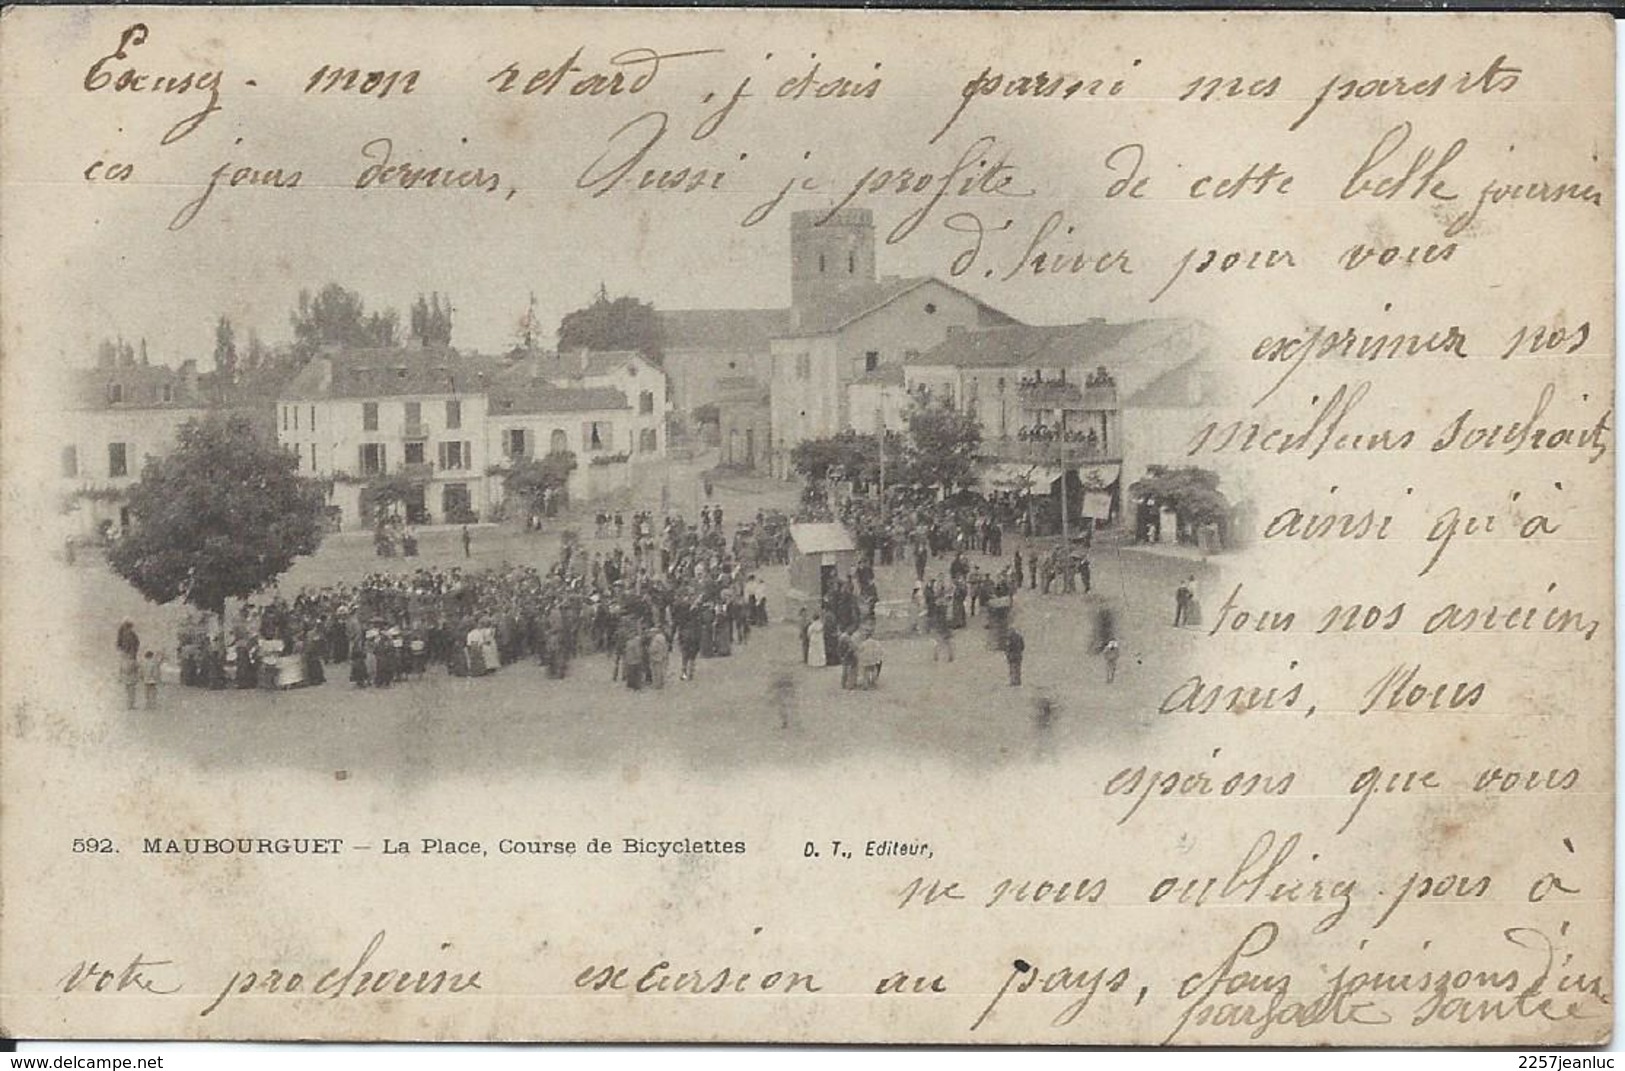 Excusez - mon retard, j'étais parmi mes parents
ces jours derniers, Aussi je profite de cette belle journée
d'hiver pour vous
exprimer nos
meilleurs souhaits
ainsi qu'à
tous nos anciens
amis, Nous
espérons que vous
592. MAUBOURGUET — La Place, Course de Bicyclettes D. T., Editeur,
ne nous oublierez pas à
votre prochaine excursion au pays, Nous jouissons d'une
parfaite santée
www.delcampe.net 2257jeanluc